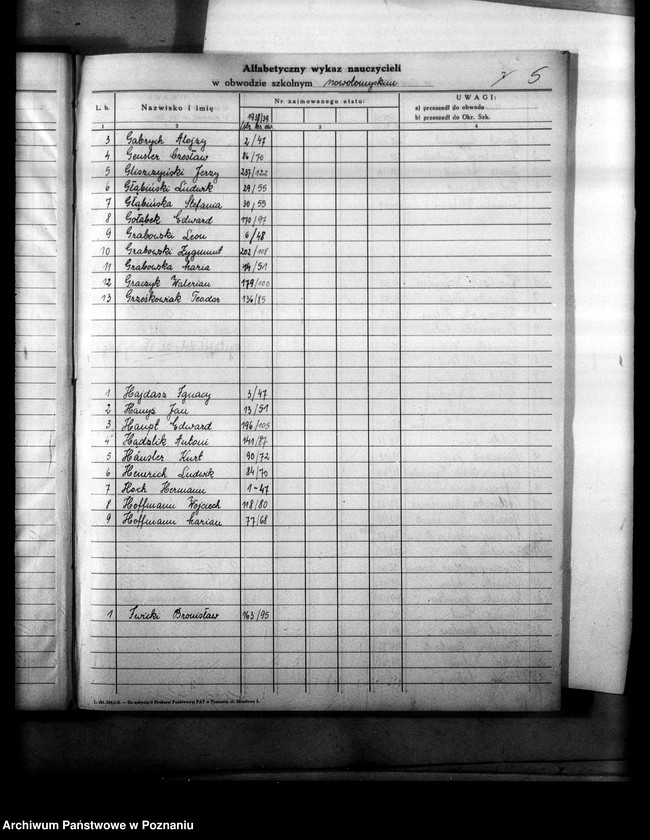 5
Alfabetyczny wykaz nauczycieli
w obwodzie szkolnym nowotomyskim
L. b. Nazwisko i imię Nr zajmowanego etatu: UWAGI:
a) przeszedł do obwodu
b) przeszedł do Okr. Szk.
1938/39
1 2 3 4
3 Gabrych Alojzy 2/47
4 Geusler Czesław 86/70
5 Gliszczyński Jerzy 237/122
6 Głąbiński Ludwik 29/55
7 Głąbińska Stefania 30/55
8 Gołąbek Edward 170/97
9 Grabowski Leon 6/48
10 Grabowski Zygmunt 202/108
11 Grabowska Maria 14/51
12 Graczyk Walerian 179/100
13 Grześkowiak Teodor 136/85
1 Hajdasz Ignacy 3/47
2 Hanyż Jan 13/51
3 Haupt Edward 196/105
4 Hądzlik Antoni 141/87
5 Häusler Kurt 90/72
6 Heinrich Ludwik 84/70
7 Hoch Hermann 1-47
8 Hoffmann Wojciech 118/80
9 Hoffmann Marian 77/68
1 Iwicki Bronisław 163/95
Do nabycia w Drukarni Państwowej PAT w Poznaniu, ul. Składowa 3.
Archiwum Państwowe w Poznaniu